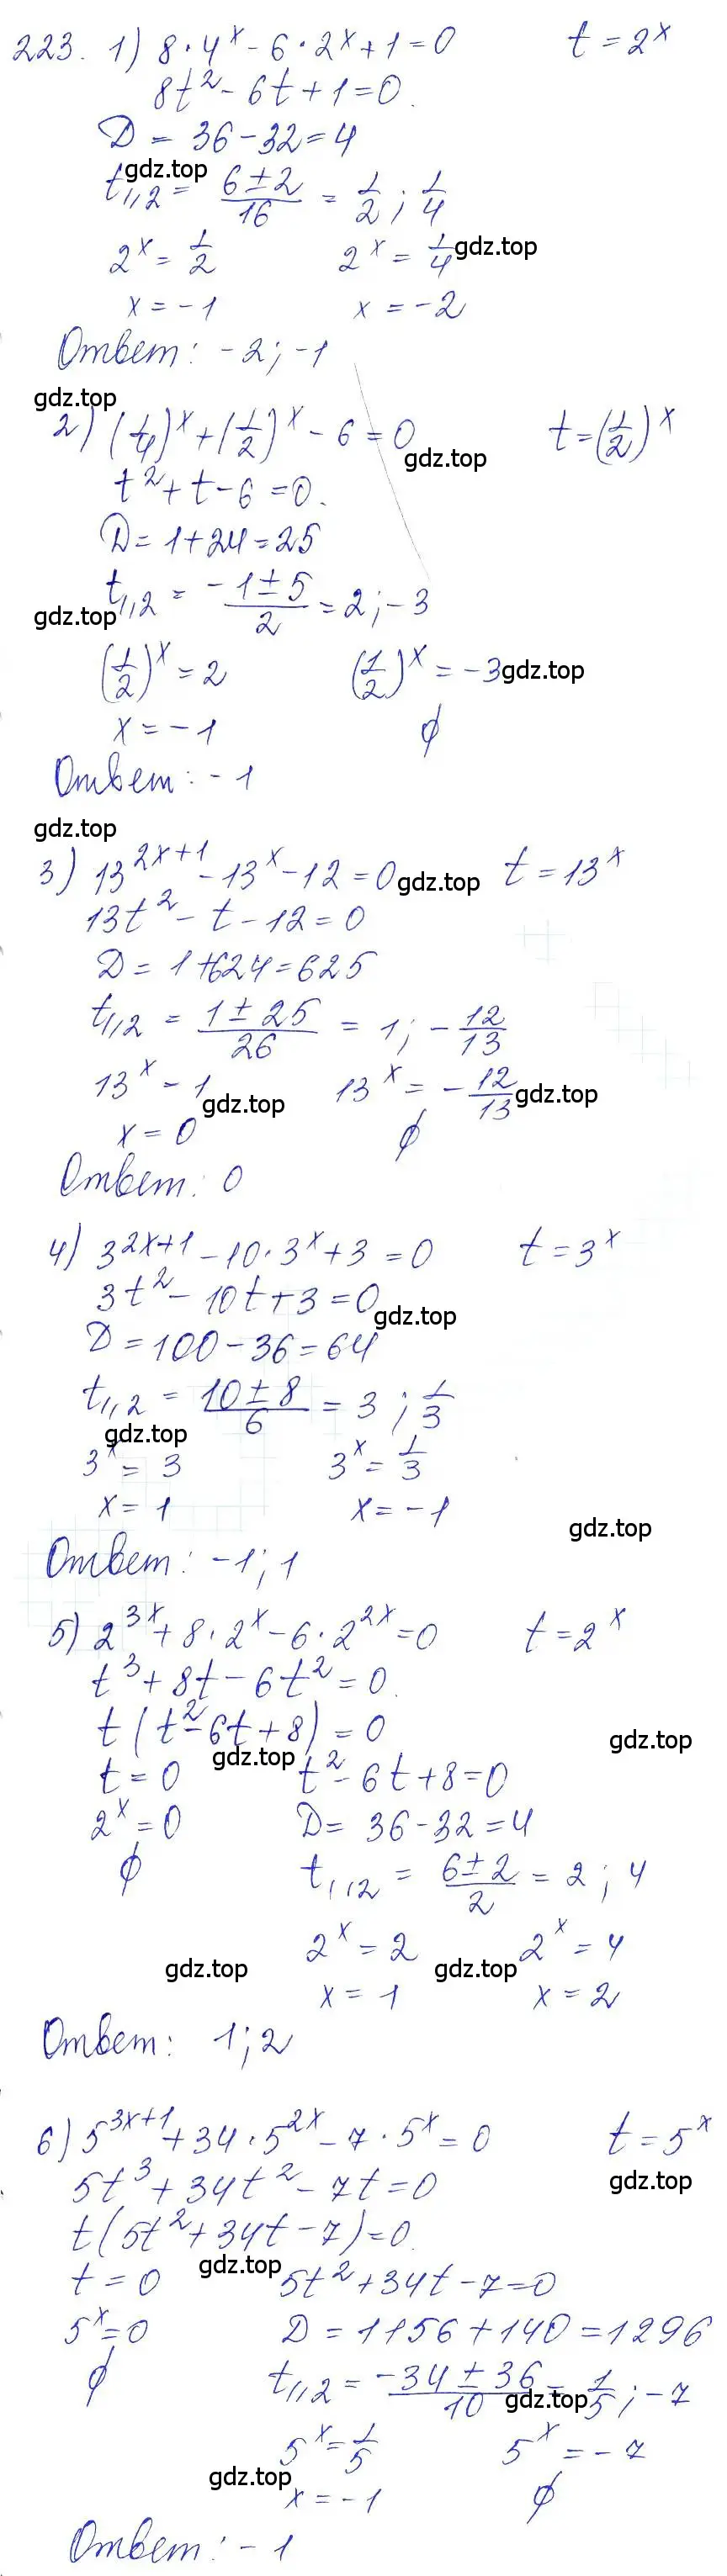 223. 1) 8·4^x - 6·2^x + 1 = 0   t = 2^x
8t² - 6t + 1 = 0.
D = 36 - 32 = 4
gdz.top
t₁,₂ = (6 ± 2)/16 = 1/2 ; 1/4
2^x = 1/2   2^x = 1/4 gdz.top
x = -1   x = -2
Ответ: -2; -1
gdz.top
2) (1/4)^x + (1/2)^x - 6 = 0   t = (1/2)^x
gdz.top
t² + t - 6 = 0.
D = 1 + 24 = 25
t₁,₂ = (-1 ± 5)/2 = 2; -3
gdz.top
(1/2)^x = 2   (1/2)^x = -3 gdz.top
x = -1   ∅
Ответ: -1
gdz.top
3) 13^(2x+1) - 13^x - 12 = 0 gdz.top t = 13^x
13t² - t - 12 = 0
D = 1 + 624 = 625
t₁,₂ = (1 ± 25)/26 = 1; -12/13
13^x - 1 gdz.top   13^x = -12/13 gdz.top
x = 0   ∅
Ответ: 0
4) 3^(2x+1) - 10·3^x + 3 = 0   t = 3^x
3t² - 10t + 3 = 0
gdz.top
D = 100 - 36 = 64
t₁,₂ = (10 ± 8)/6 = 3 ; 1/3
gdz.top
3^x = 3   3^x = 1/3
x = 1   x = -1
gdz.top
Ответ: -1; 1
5) 2^(3x) + 8·2^x - 6·2^(2x) = 0   t = 2^x
t³ + 8t - 6t² = 0.
t(t² - 6t + 8) = 0
gdz.top gdz.top
t = 0   t² - 6t + 8 = 0
2^x = 0   D = 36 - 32 = 4
∅   t₁,₂ = (6 ± 2)/2 = 2 ; 4
2^x = 2   2^x = 4
gdz.top gdz.top
x = 1   x = 2
Ответ: 1; 2
6) 5^(3x+1) + 34·5^(2x) - 7·5^x = 0   t = 5^x
gdz.top
5t³ + 34t² - 7t = 0
t(5t² + 34t - 7) = 0.
gdz.top
t = 0   5t² + 34t - 7 = 0
5^x = 0   D = 1156 + 140 = 1296
∅   t₁,₂ = (-34 ± 36)/10 = 1/5 ; -7
gdz.top
5^x = 1/5   5^x = -7
gdz.top
x = -1   ∅
Ответ: -1